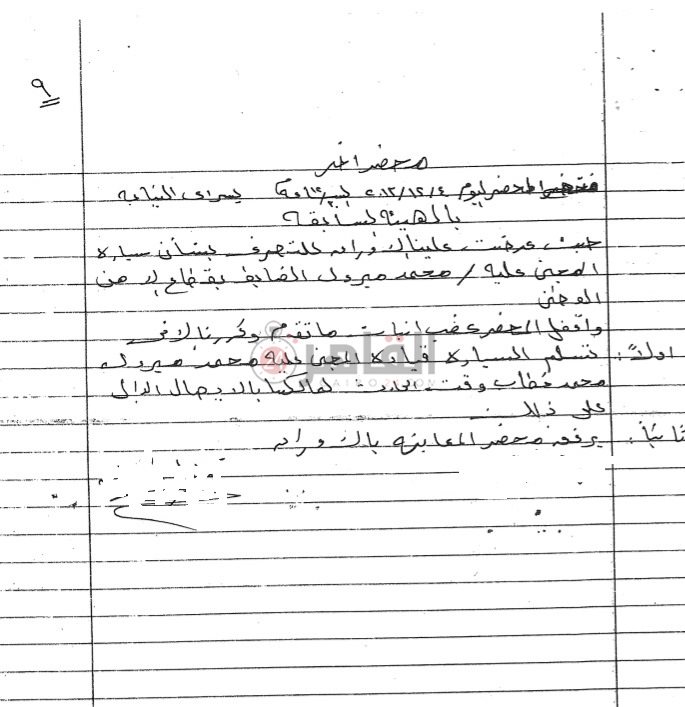 ٩
محضر اخر
فتح المحضر اليوم ٢٠١٣/١٢/٤ الساعة بسراى النيابه
بالهيئة السابقة
حيث عرضت علينا الاوراق للتصرف بشأن سياره
المجنى عليه / محمد مبروك الضابط بقطاع الامن
الوطنى
واقفل المحضر عقب اثبات ماتقدم وقررنا الاتى
اولاً : تسلم السيارة قيادة المجنى عليه محمد مبروك
محمد خطاب وقت الحادث لمالكها بالايصال الدال
على ذلك
ثانياً : يرفق محضر المعاينه بالاوراق
القاهرة
CAIRO24.COM